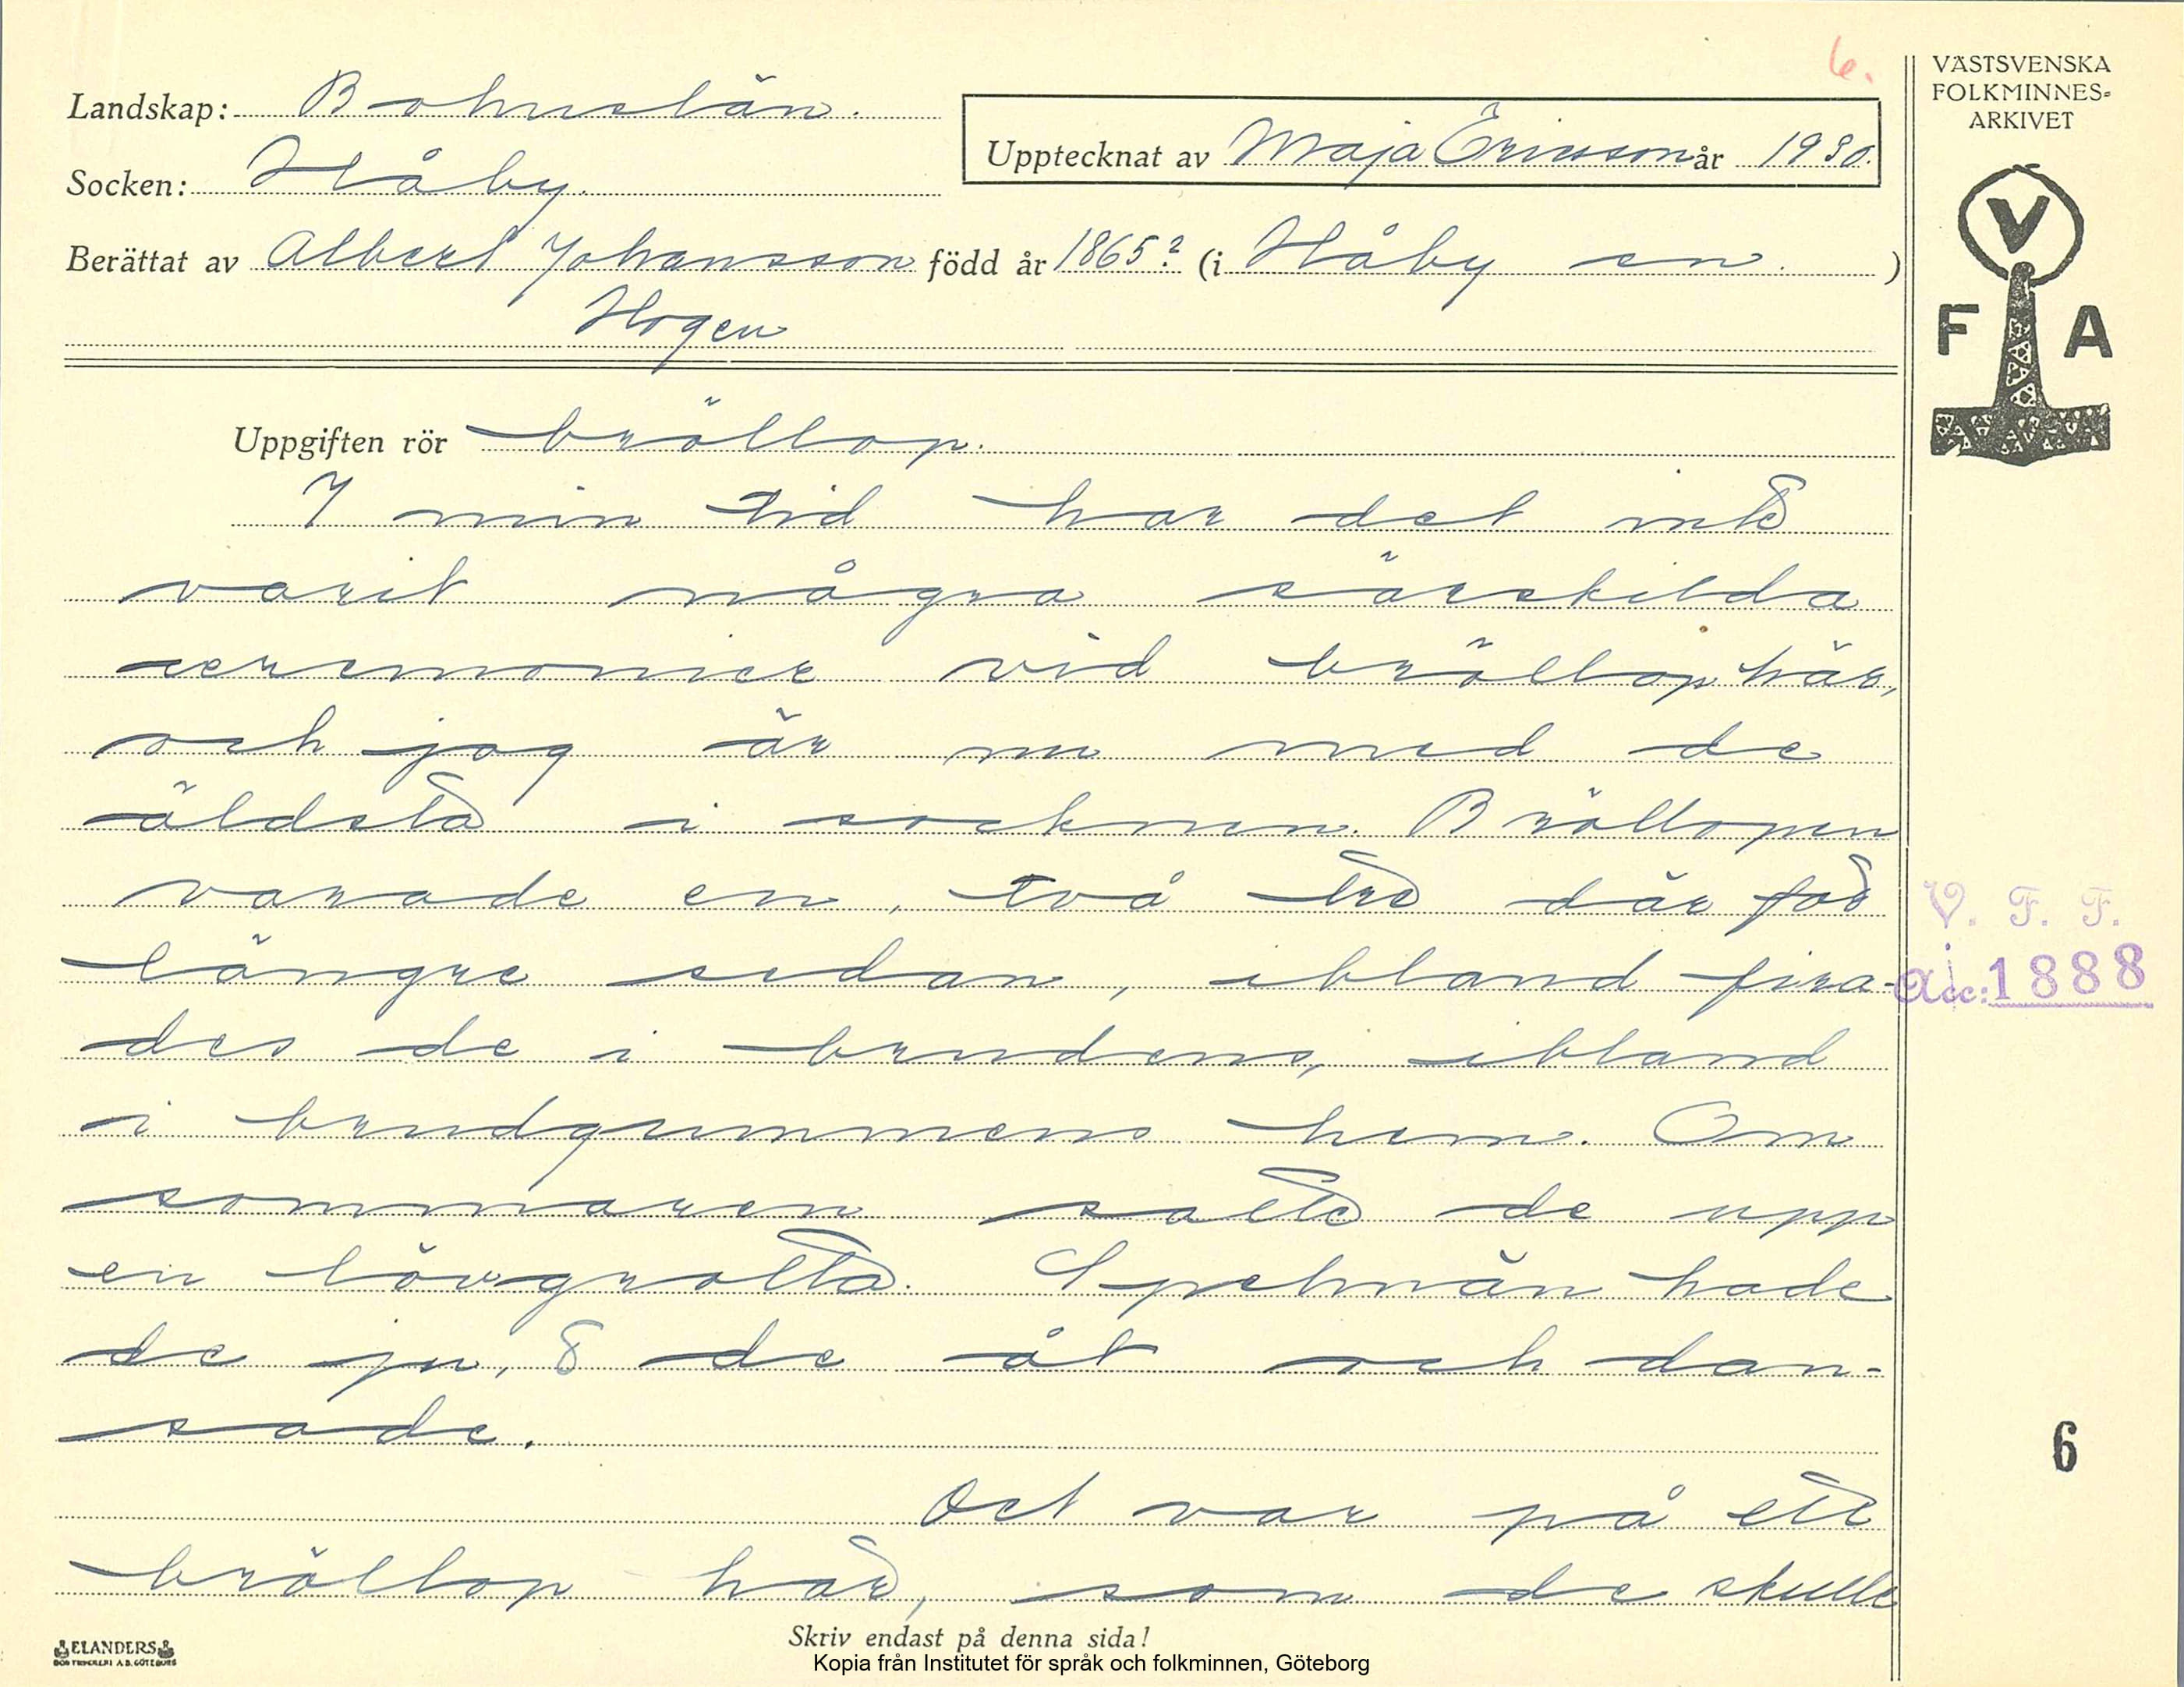 6.
VÄSTSVENSKA
FOLKMINNES-
ARKIVET
Landskap: Bohuslän.
Upptecknat av Maja Ericsson år 1930.
Socken: Håby.
Berättat av Albert Johansson född år 1865? (i Håby sn. )
Hogen
V
F A
Uppgiften rör bröllop.
I min tid har det inte
varit några särskilda
ceremonier vid bröllop här,
och jag är nu med de
äldsta i socknen. Bröllopen
varade en, två tre där för
längre sedan, ibland fira-
des de i brudens, ibland
i brudgummens hem. Om
sommaren satte de upp
en lövgrotta. Spelmän hade
de ju, & de åt och dan-
sade.
Det var på ett
bröllop här, som de skulle
V. F. F.
Acc: 1888
6
Skriv endast på denna sida!
ELANDERS
BOKTRYCKERI A.B. GÖTEBORG
Kopia från Institutet för språk och folkminnen, Göteborg